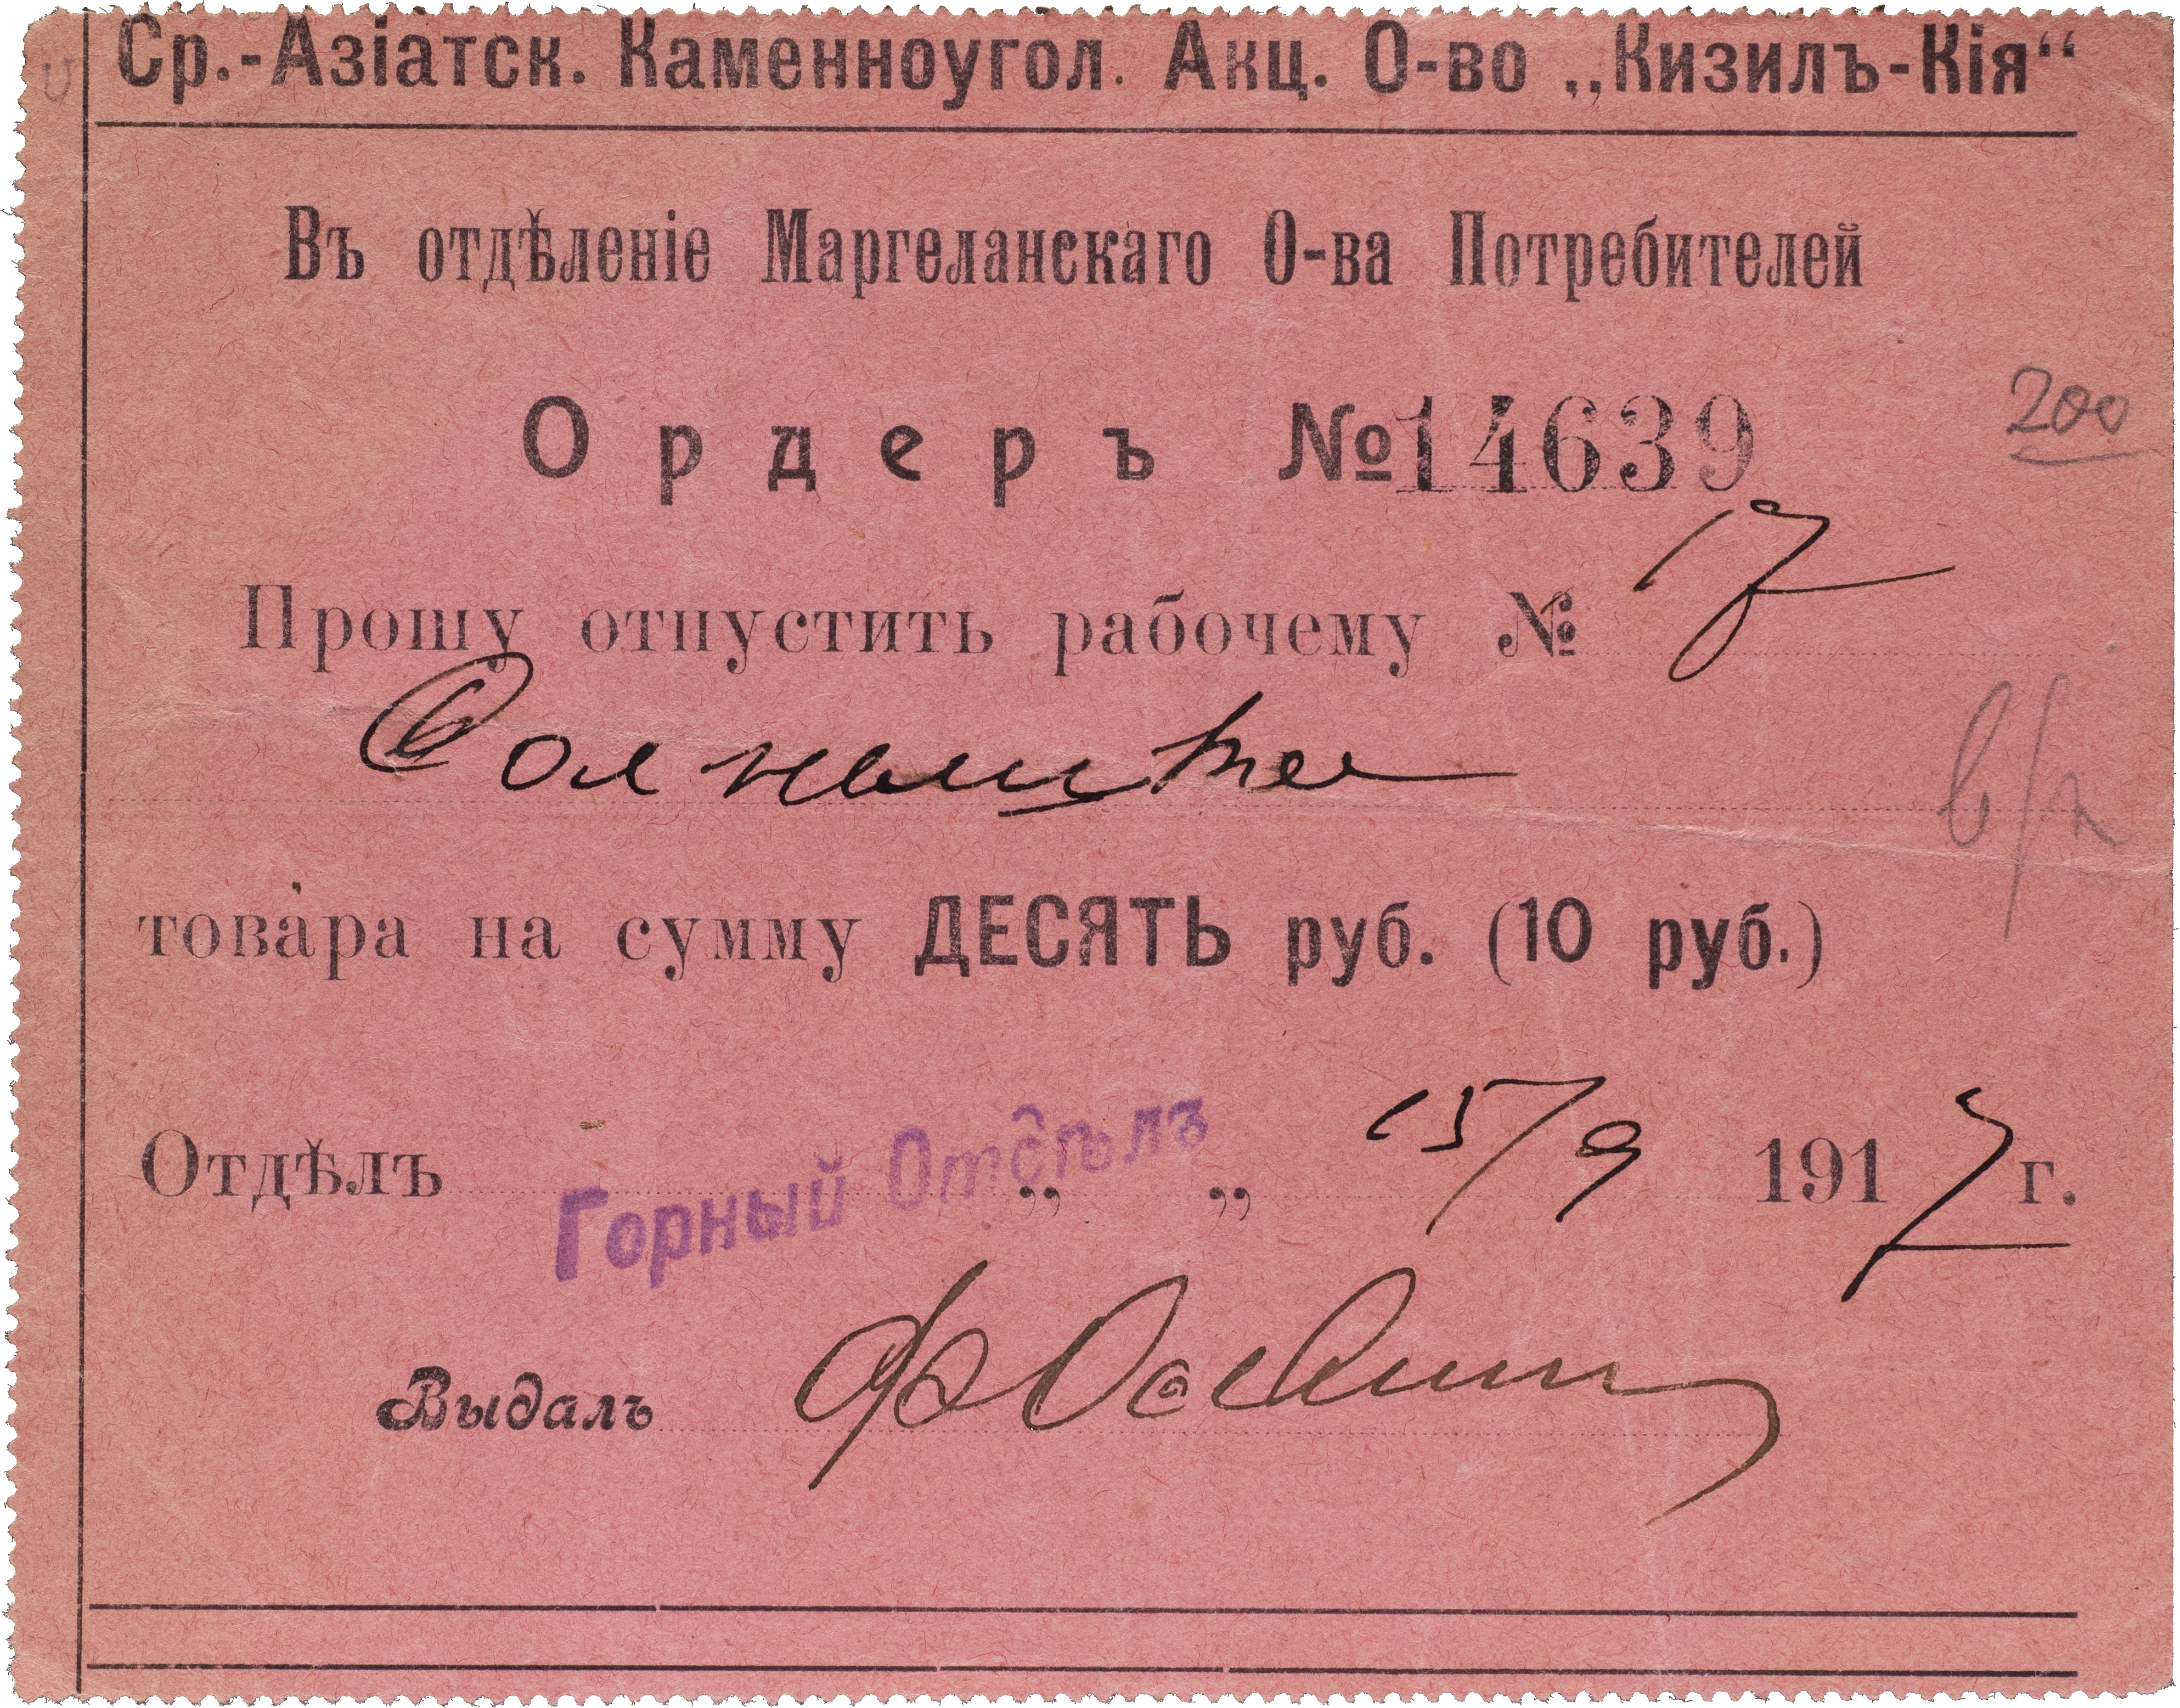 Ср.-Азіатск. Каменноугол. Акц. О-во „Кизилъ-Кія“
Въ отдѣленіе Маргеланскаго О-ва Потребителей
Ордеръ №14639
200
Прошу отпустить рабочему № 17
товара на сумму ДЕСЯТЬ руб. (10 руб.)
Отдѣлъ Горный Отдѣлъ „ „ 15/9 1917 г.
Выдалъ